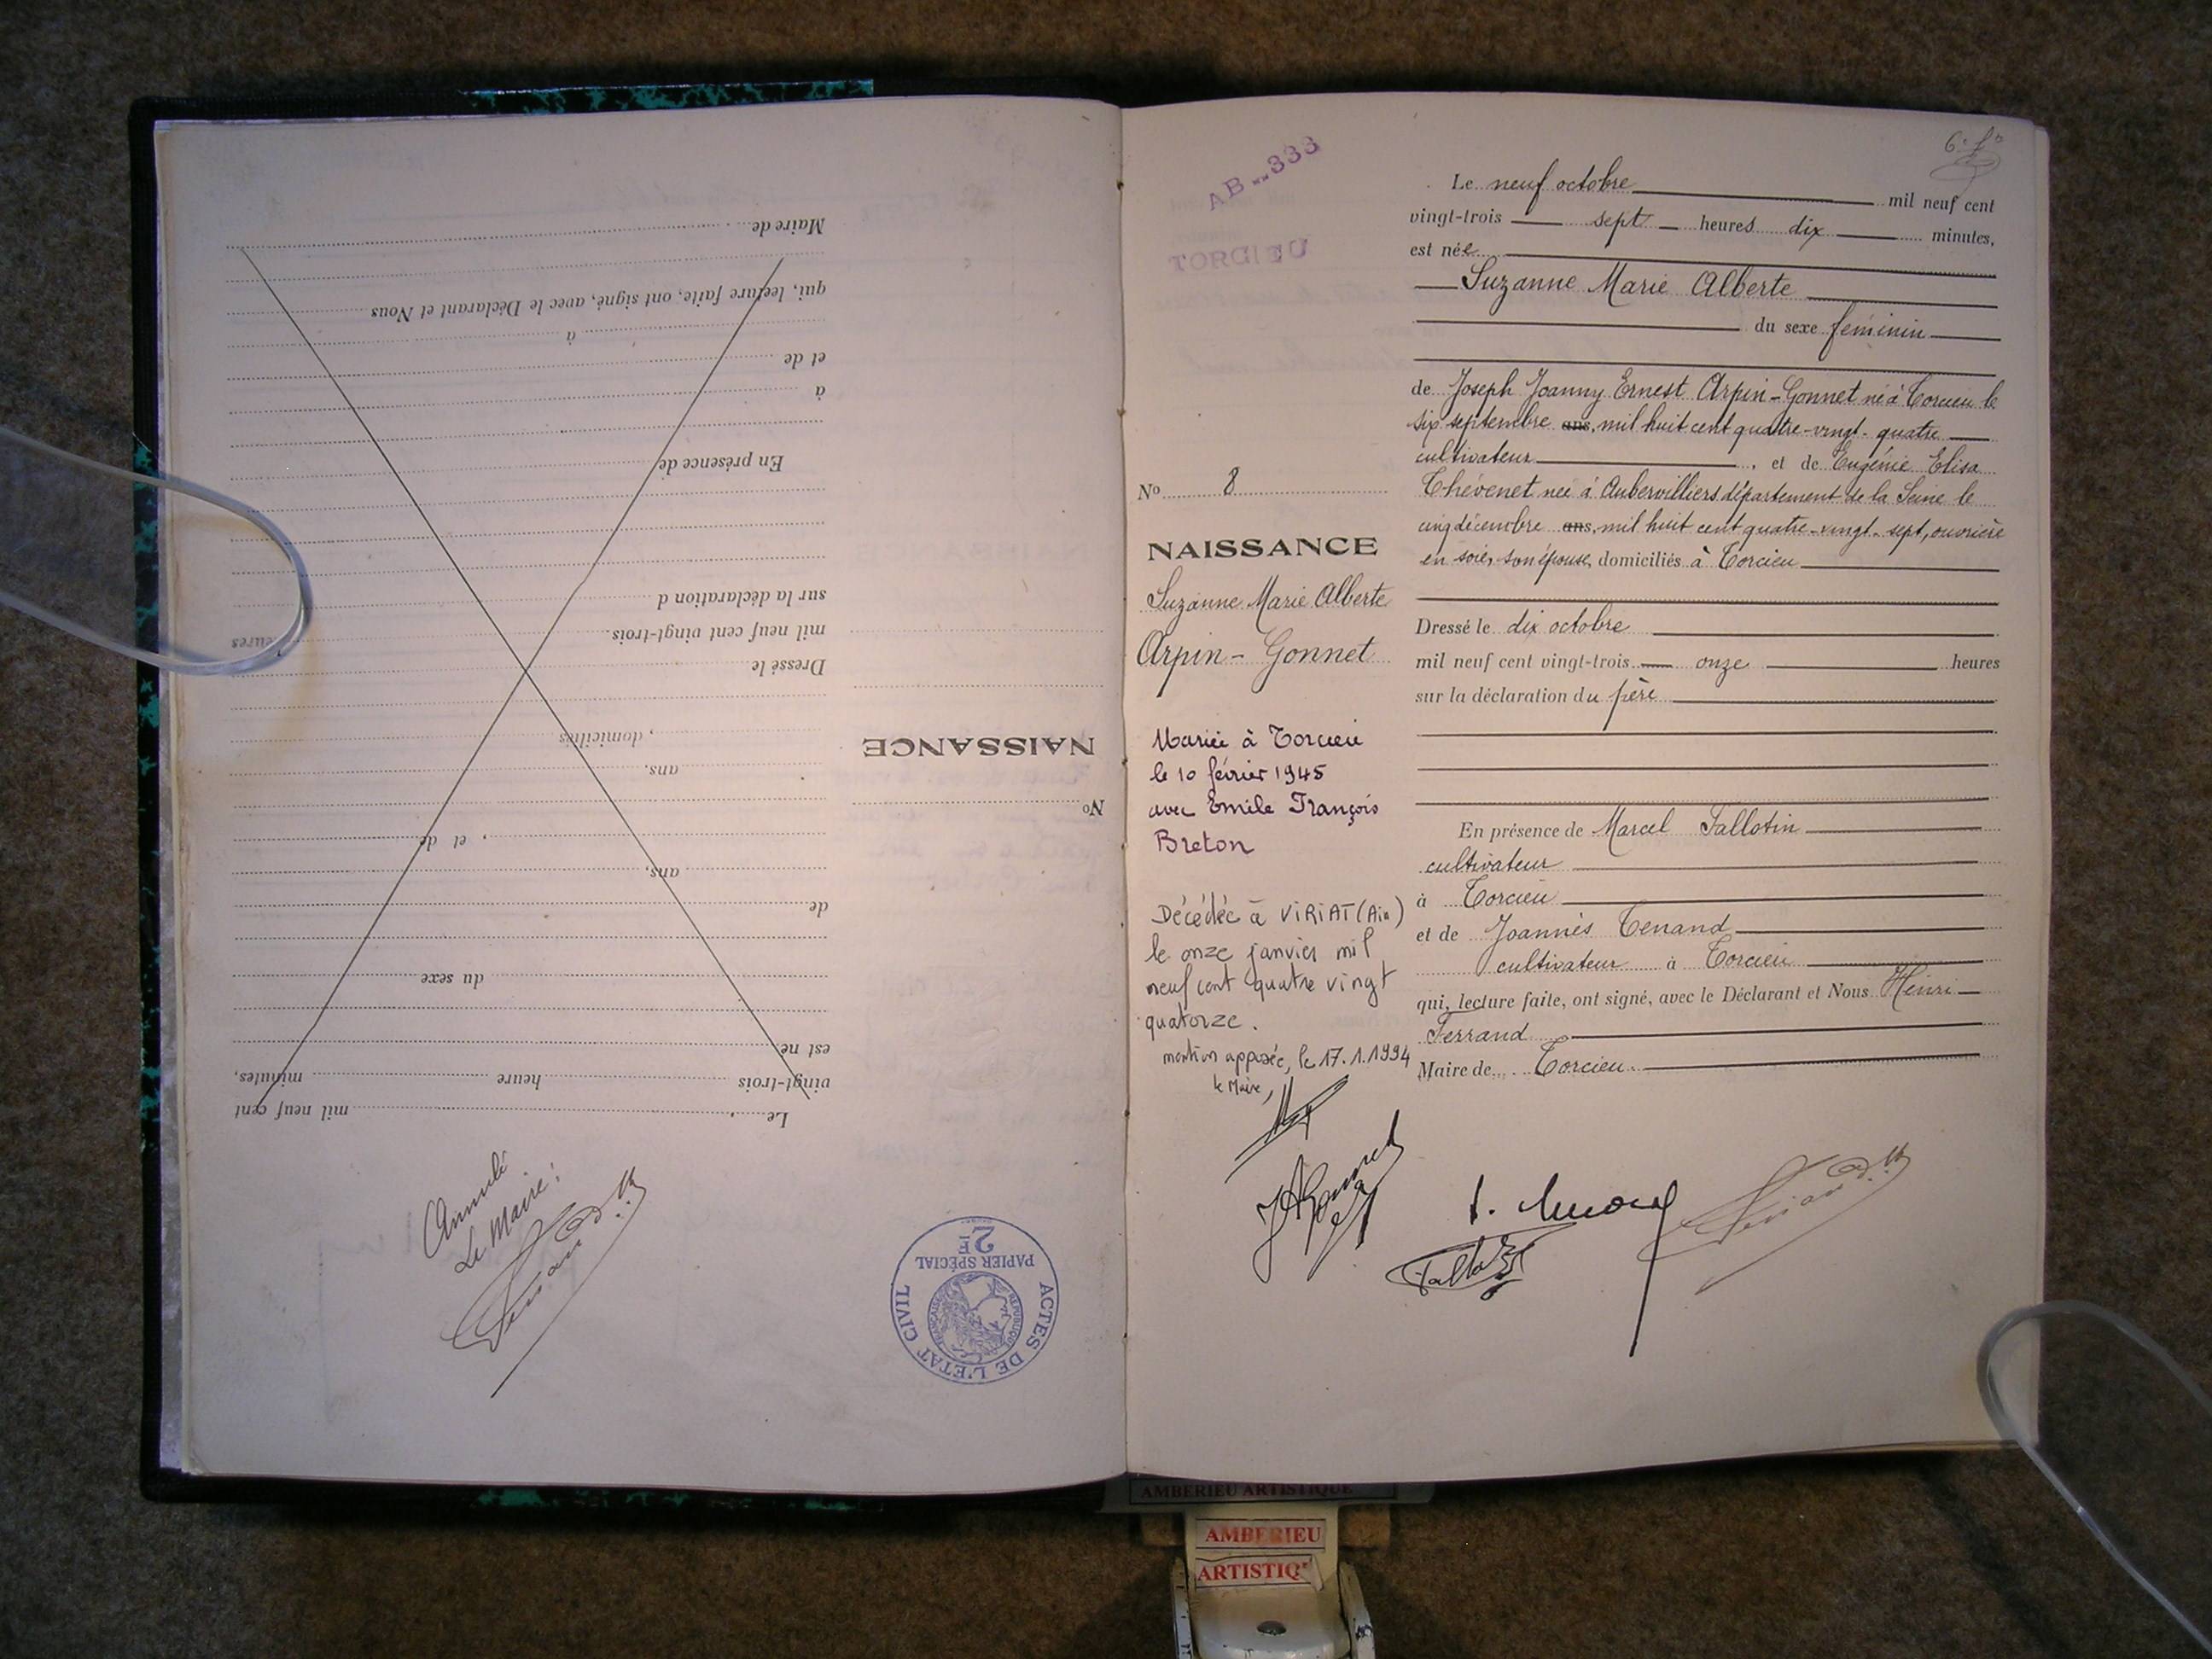 Maire de
qui, lecture faite, ont signé, avec le Déclarant et Nous
à
et de
à
En présence de
sur la déclaration d
mil neuf cent vingt-trois heures
Dressé le
, domiciliés
ans.
, et de
ans,
de
du sexe
est né
vingt-trois heure minutes,
Le mil neuf cent
NAISSANCE
No
Annulé
Le Maire:
ACTES DE L'ETAT CIVIL
PAPIER SPÉCIAL
2F
REPUBLIQUE FRANÇAISE
AB 333
TORCIEU
No 8
NAISSANCE
Suzanne Marie Alberte
Arpin-Gonnet
Mariée à Torcieu
le 10 février 1945
avec Emile François
Breton
Décédée à VIRIAT (Ain)
le onze janvier mil
neuf cent quatre vingt
quatorze.
mention apposée, le 17.1.1994
le Maire,
6e fo
Le neuf octobre mil neuf cent
vingt-trois sept heures dix minutes,
est née
Suzanne Marie Alberte
du sexe féminin
de Joseph Joanny Ernest Arpin-Gonnet né à Torcieu le
six septembre ans, mil huit cent quatre-vingt-quatre
cultivateur, et de Eugénie Elisa
Thévenet née à Aubervilliers département de la Seine le
cinq décembre ans, mil huit cent quatre-vingt-sept, ouvrière
en soie, son épouse, domiciliés à Torcieu
Dressé le dix octobre
mil neuf cent vingt-trois onze heures
sur la déclaration du père
En présence de Marcel Tallotin
cultivateur
à Torcieu
et de Joannès Tenand
cultivateur à Torcieu
qui, lecture faite, ont signé, avec le Déclarant et Nous Henri
Ferrand
Maire de Torcieu.
AMBERIEU ARTISTIQUE
AMBERIEU
ARTISTIQ